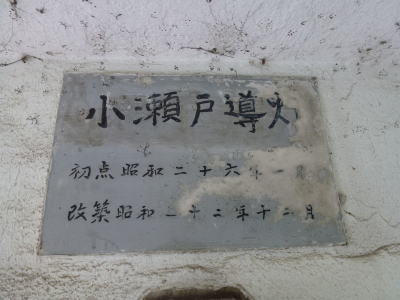 小瀬戸導灯
初点昭和二十六年一月
改築昭和二十二年十二月